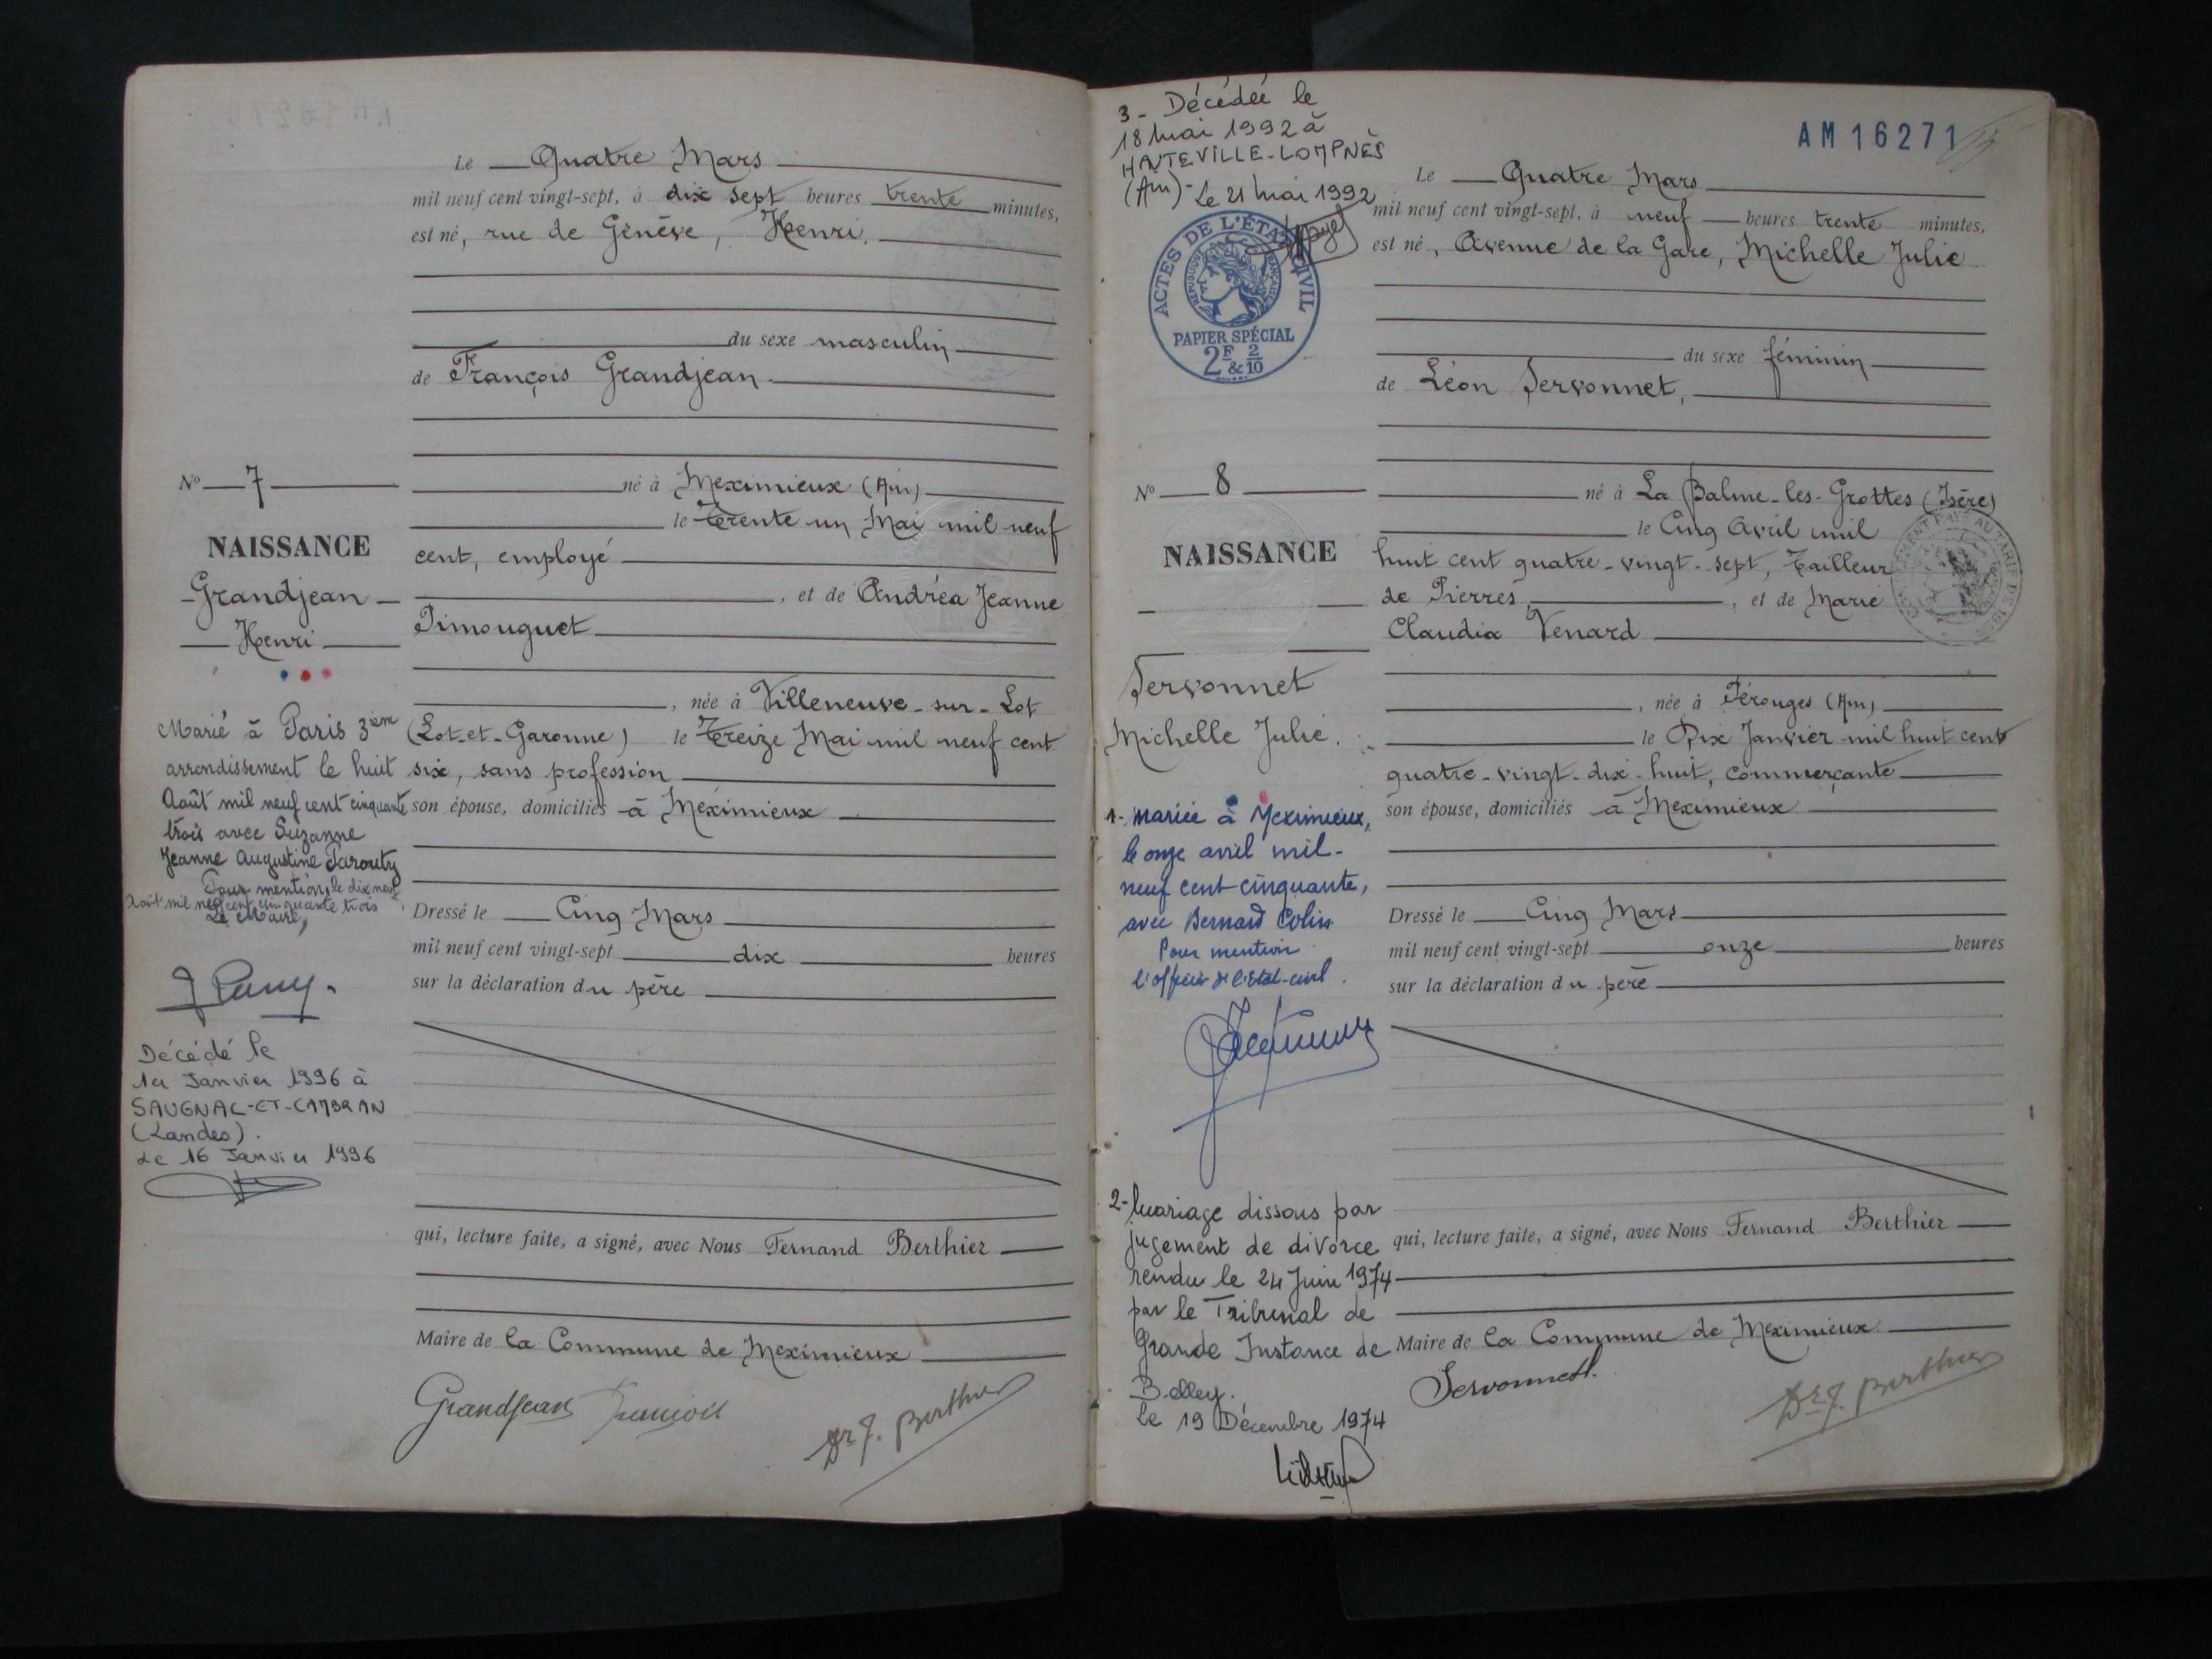 Le Quatre Mars
mil neuf cent vingt-sept, à dix sept heures trente minutes,
est né, rue de Genève, Henri.
du sexe masculin
de François Grandjean
né à Meximieux (Ain)
le trente un Mai mil neuf
cent, employé
, et de Andréa Jeanne
Pimouguet
, née à Villeneuve-sur-Lot
(Lot-et-Garonne) le treize Mai mil neuf cent
six, sans profession
son épouse, domiciliés à Meximieux
Dressé le Cinq Mars
mil neuf cent vingt-sept dix heures
sur la déclaration du père
qui, lecture faite, a signé, avec Nous Fernand Berthier
Maire de la Commune de Meximieux
Grandjean François
Dr F. Berthier
No 7
NAISSANCE
Grandjean
Henri
Marié à Paris 3ième
arrondissement le huit
Août mil neuf cent cinquante
trois avec Suzanne
Jeanne Augustine Tarouty
Pour mention, le dix neuf
Août mil neuf cent cinquante trois
Le Maire,
Décédé le
1er Janvier 1996 à
SAUGNAC-ET-CAMBRAN
(Landes).
Le 16 Janvier 1996
3- Décédée le
18 mai 1992 à
HAUTEVILLE-LOMPNÈS
(Ain)- Le 21 mai 1992
ACTES DE L'ÉTAT CIVIL
RÉPUBLIQUE FRANÇAISE
PAPIER SPÉCIAL
2F & 2/10
AM16271
Le Quatre Mars
mil neuf cent vingt-sept, à neuf heures trente minutes,
est né, Avenue de la Gare, Michelle Julie
du sexe féminin
de Léon Servonnet,
né à La Balme-les-Grottes (Isère)
le Cinq Avril mil
huit cent quatre-vingt-sept, Tailleur
de Pierres, et de Marie
Claudia Venard
, née à Pérouges (Ain)
le Dix Janvier mil huit cent
quatre-vingt-dix-huit, commerçante
son épouse, domiciliés à Meximieux
Dressé le Cinq Mars
mil neuf cent vingt-sept onze heures
sur la déclaration du père
qui, lecture faite, a signé, avec Nous Fernand Berthier
Maire de la Commune de Meximieux
Servonnet
Dr F. Berthier
No 8
NAISSANCE
Servonnet
Michelle Julie.
1- Mariée à Meximieux,
le onze avril mil-
neuf cent cinquante,
avec Bernard Colin
Pour mention
l'officier de l'Etat-civil.
2- Mariage dissous par
jugement de divorce
rendu le 24 Juin 1974
par le Tribunal de
Grande Instance de
Belley.
Le 19 Décembre 1974